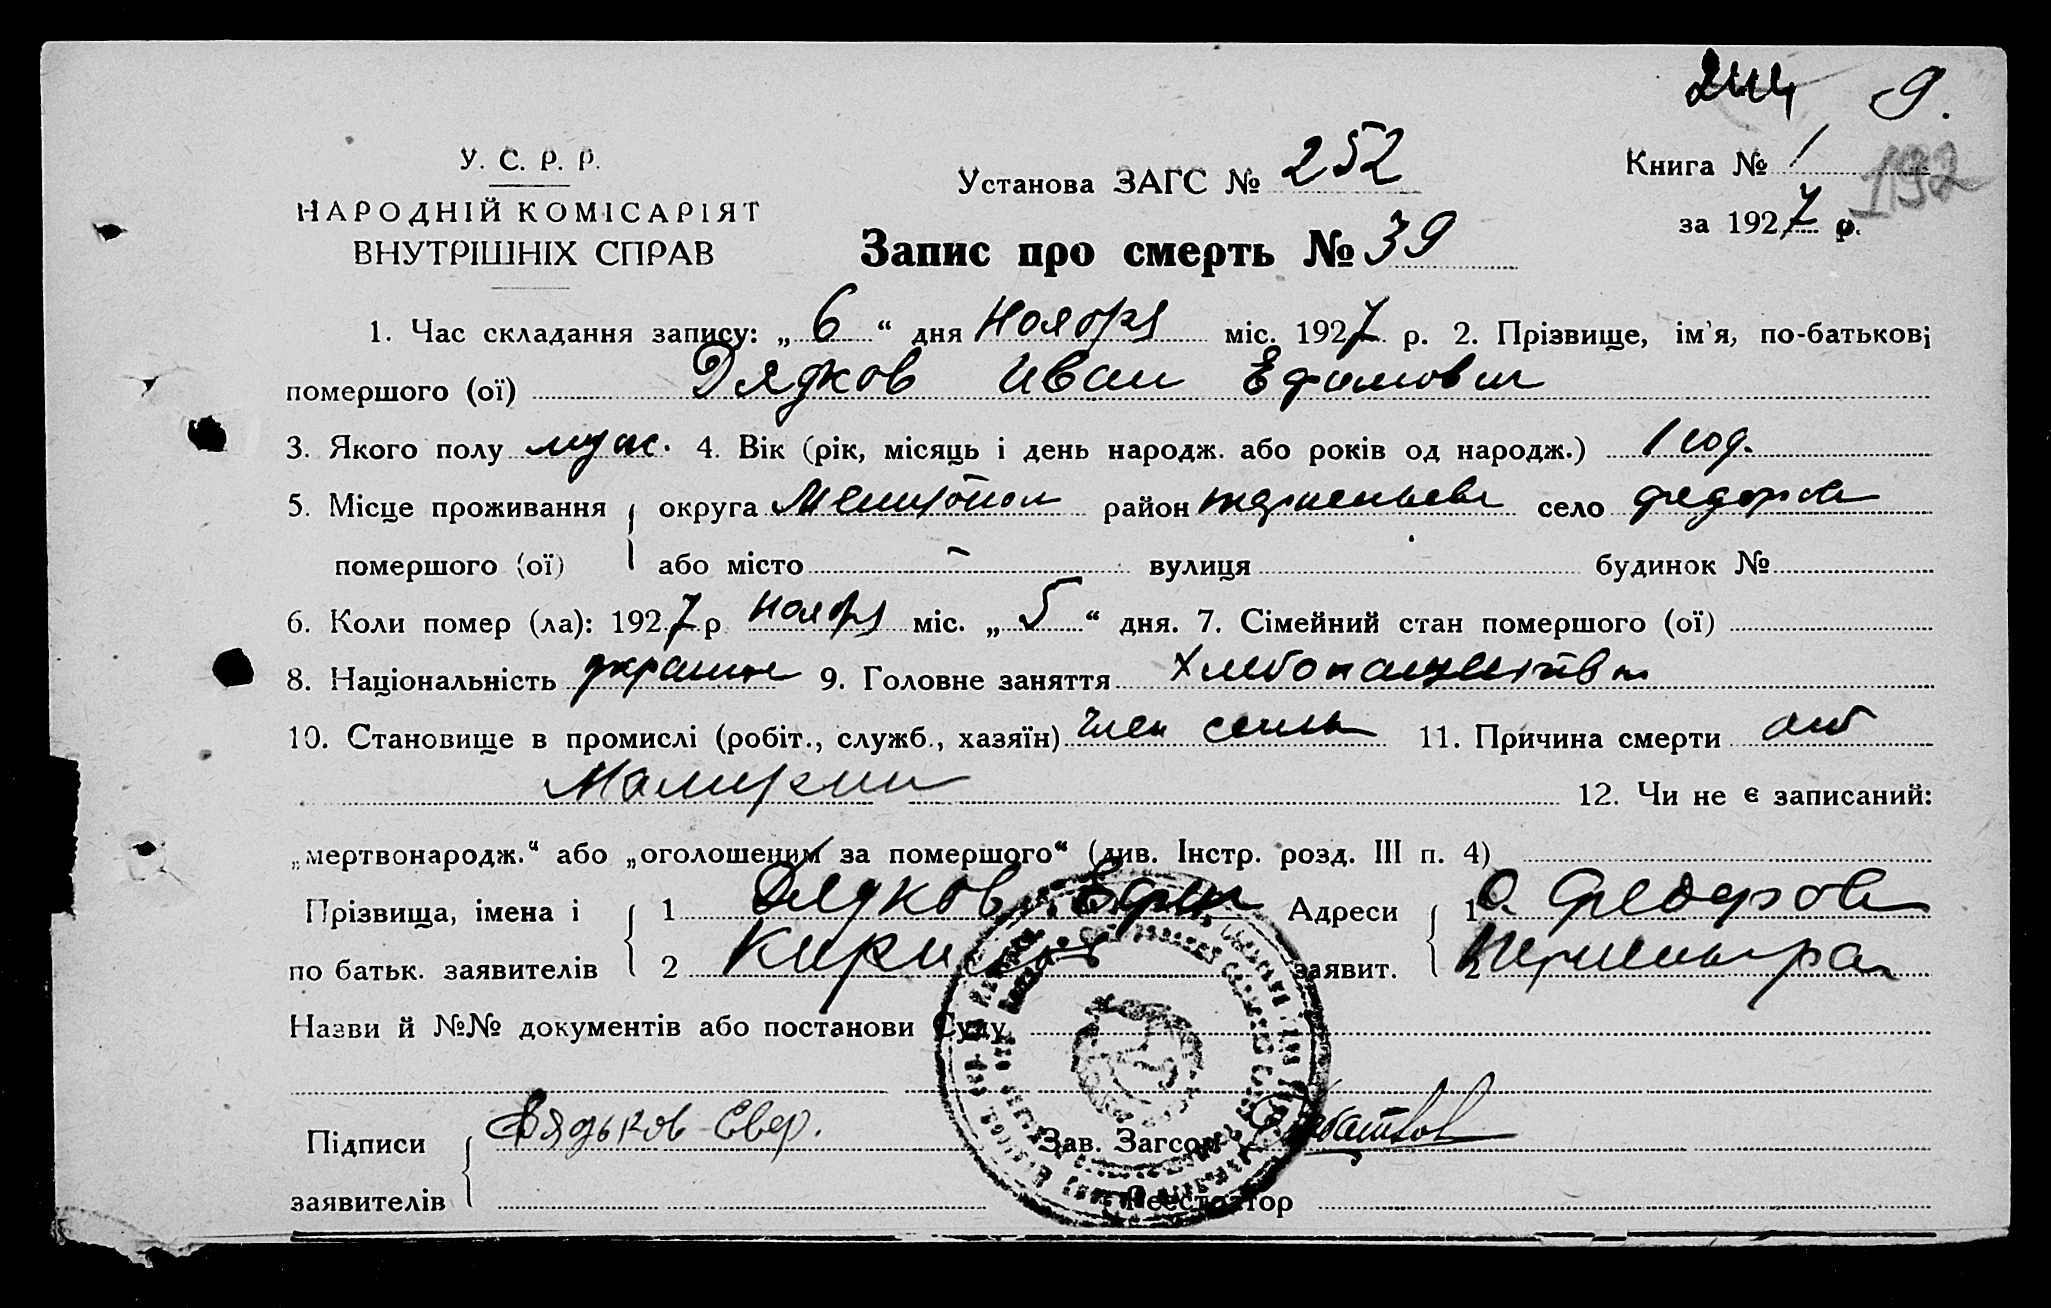 244 9.
У. С. Р. Р.
НАРОДНІЙ КОМІСАРІЯТ
ВНУТРІШНІХ СПРАВ
Установа ЗАГС № 252
Запис про смерть № 39
Книга № 1 192
за 1927 р.
1. Час складання запису: „6“ дня Ноября міс. 1927 р. 2. Прізвище, ім'я, по-батькові
помершого (ої) Дядков Иван Ефимович
3. Якого полу муж. 4. Вік (рік, місяць і день народж. або років од народж.) 1 год.
5. Місце проживання округа Мелитопол район село Федоров
помершого (ої) або місто — вулиця будинок №
6. Коли помер (ла): 1927 р ноября міс. „5“ дня. 7. Сімейний стан помершого (ої)
8. Національність украин 9. Головне заняття Хлебопашество
10. Становище в промислі (робіт., служб., хазяїн) член семьи 11. Причина смерти от
Малярии 12. Чи не є записаний:
„мертвонародж.“ або „оголошеним за помершого“ (див. Інстр. розд. III п. 4)
Прізвища, імена і 1 Дядков Ефим Адреси 1 с. Федоров
по батьк. заявителів 2 заявит. 2
Назви й №№ документів або постанови Суду
Підписи Дядьков Зав. Загсом
заявителів Реєстратор